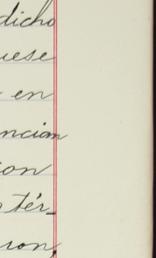 dicho
uese
en
ncion
ion
tér_
ron,